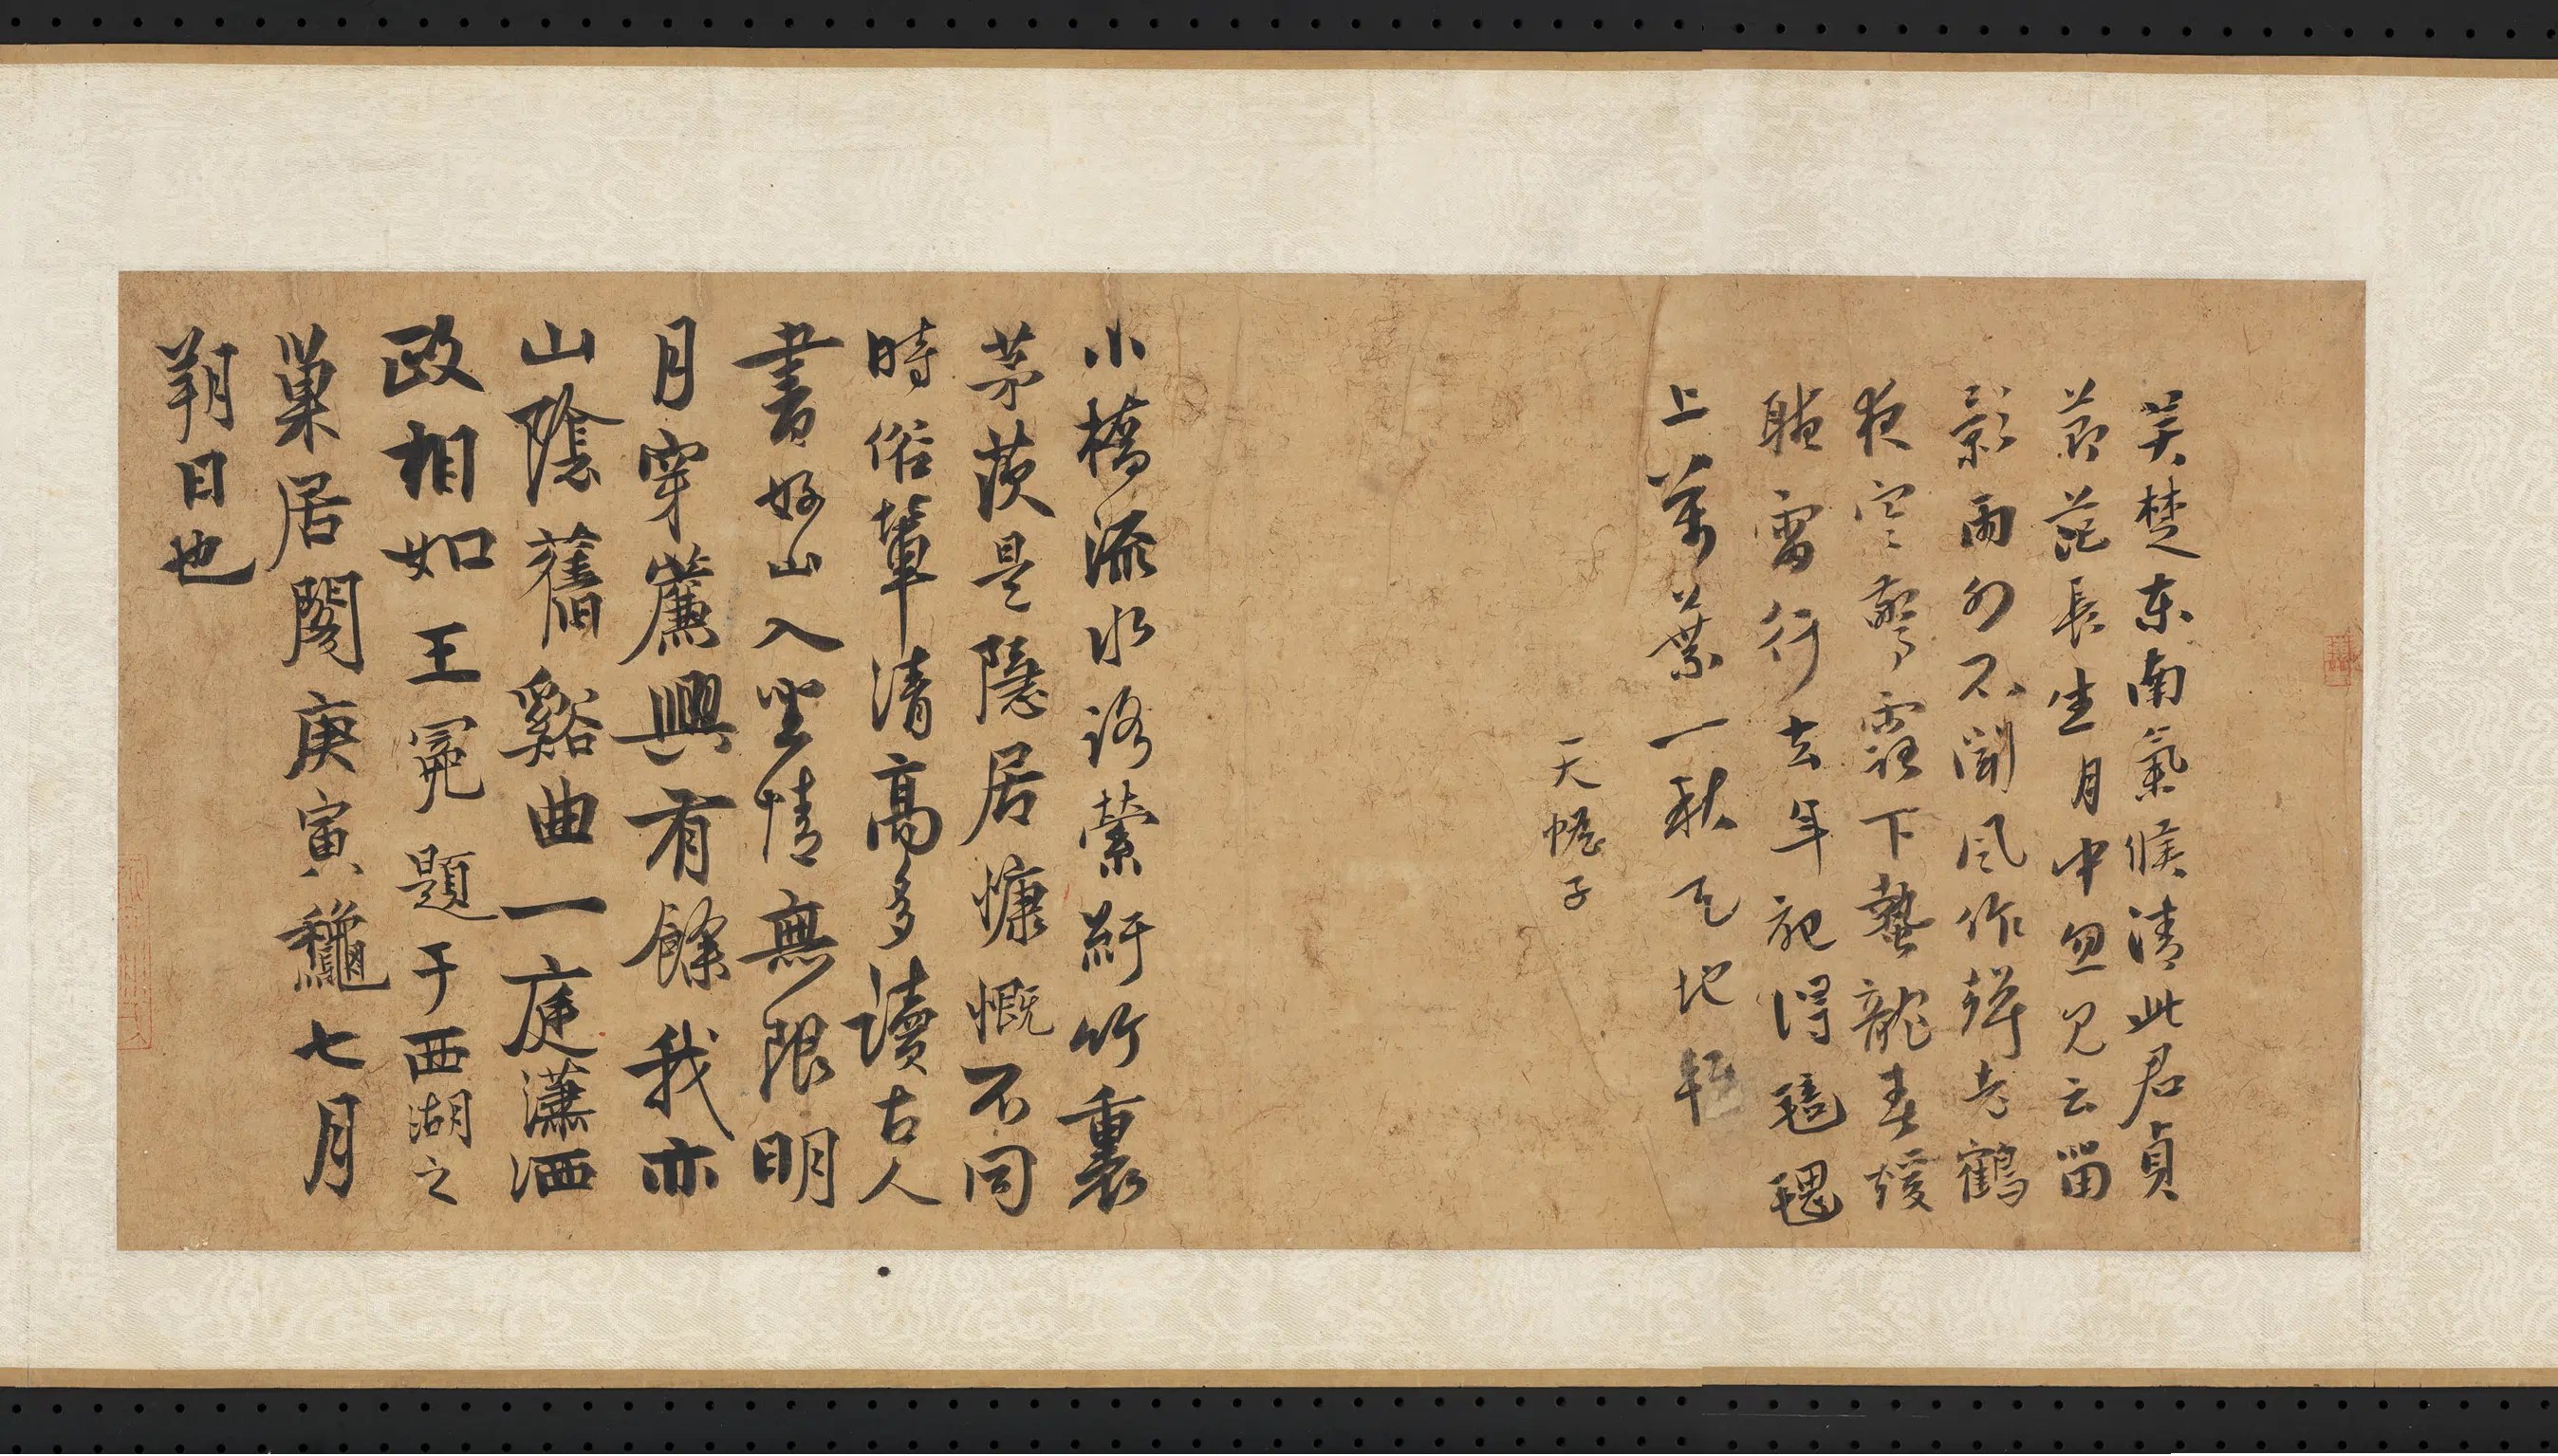 吴楚东南氣候清此君貞
節茫長生月中忽見云留
影雨外不聞风作聲老鶴
夜空驚露下蟄龍春暖
聽雷行去年記得 
上萬葉一秋天地
天 子
小橋流水路縈紆竹裏
茅茨是隱居慷慨不同
時俗輩清高多讀古人
書好山入坐情無限明
月穿簾興有餘我亦
山陰舊谿曲一庭瀟洒
政相如王冕題于西湖之
巢居閣庚寅龝七月
朔日也